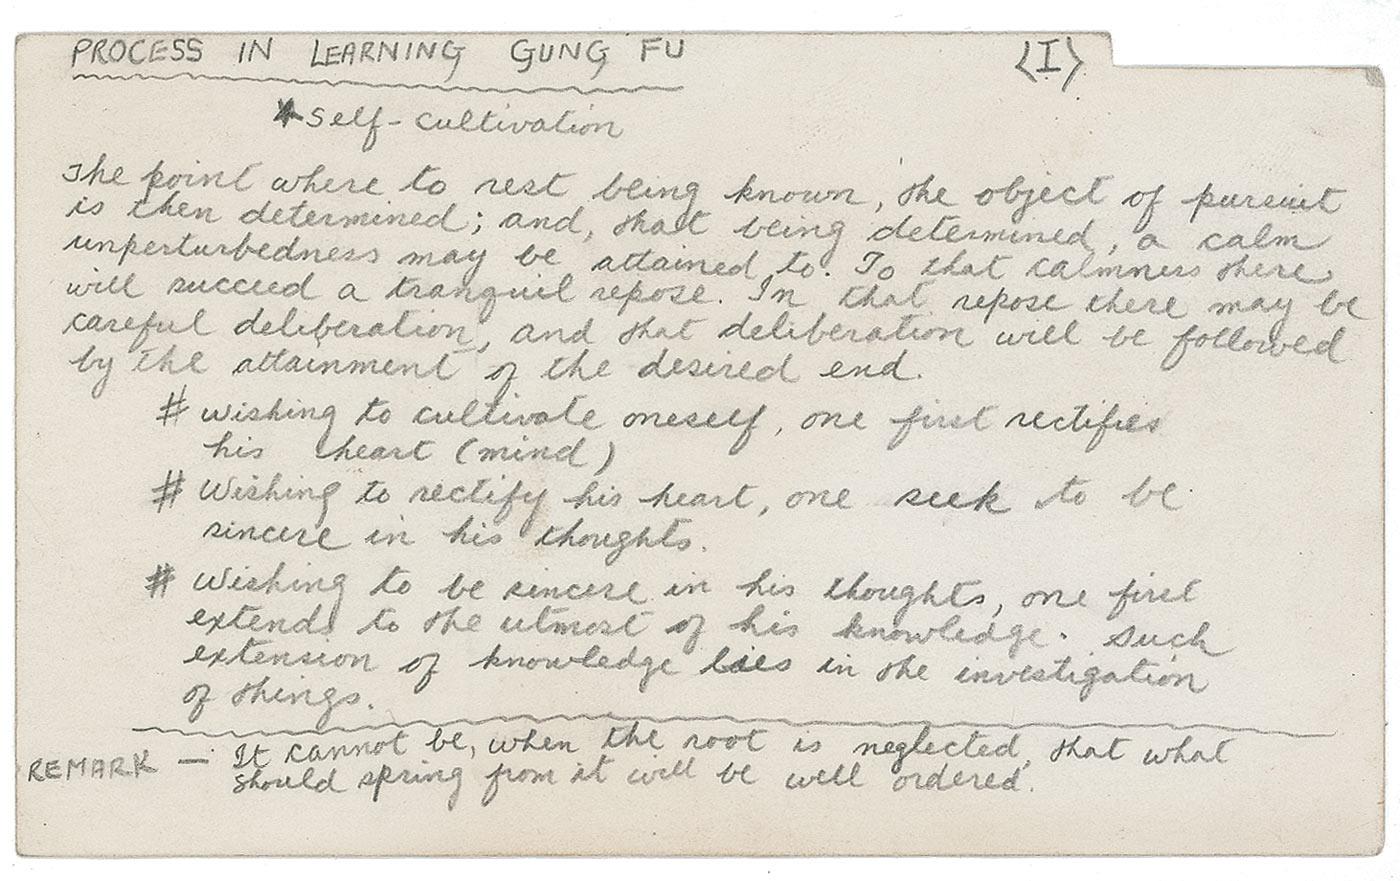 PROCESS IN LEARNING GUNG FU <I>
★ Self-cultivation
The point where to rest being known, the object of pursuit
is then determined; and, that being determined, a calm
unperturbedness may be attained to. To that calmness there
will succeed a tranquil repose. In that repose there may be
careful deliberation, and that deliberation will be followed
by the attainment of the desired end.
# wishing to cultivate oneself, one first rectifies
his heart (mind)
# Wishing to rectify his heart, one seek to be
sincere in his thoughts.
# Wishing to be sincere in his thoughts, one first
extends to the utmost of his knowledge. Such
extension of knowledge lies in the investigation
of things.
REMARK — It cannot be, when the root is neglected, that what
should spring from it will be well ordered.